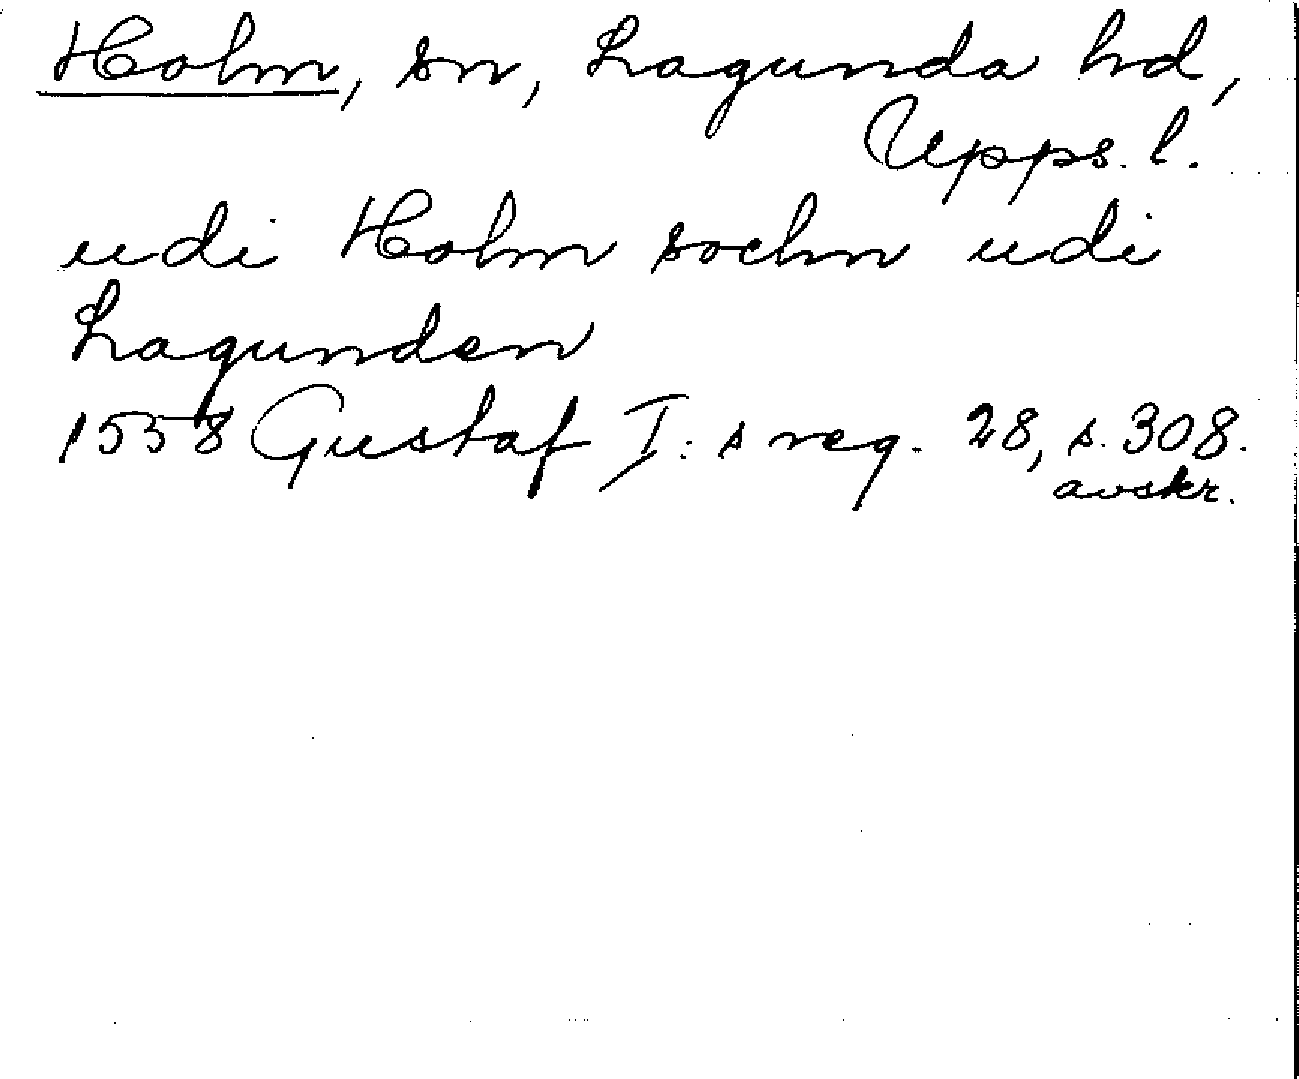 Holm, sn, Lagunda hd,
Upps. l.
udi Holm sochn udi
Lagunden
1558 Gustaf I: s reg. 28, s. 308.
avskr.